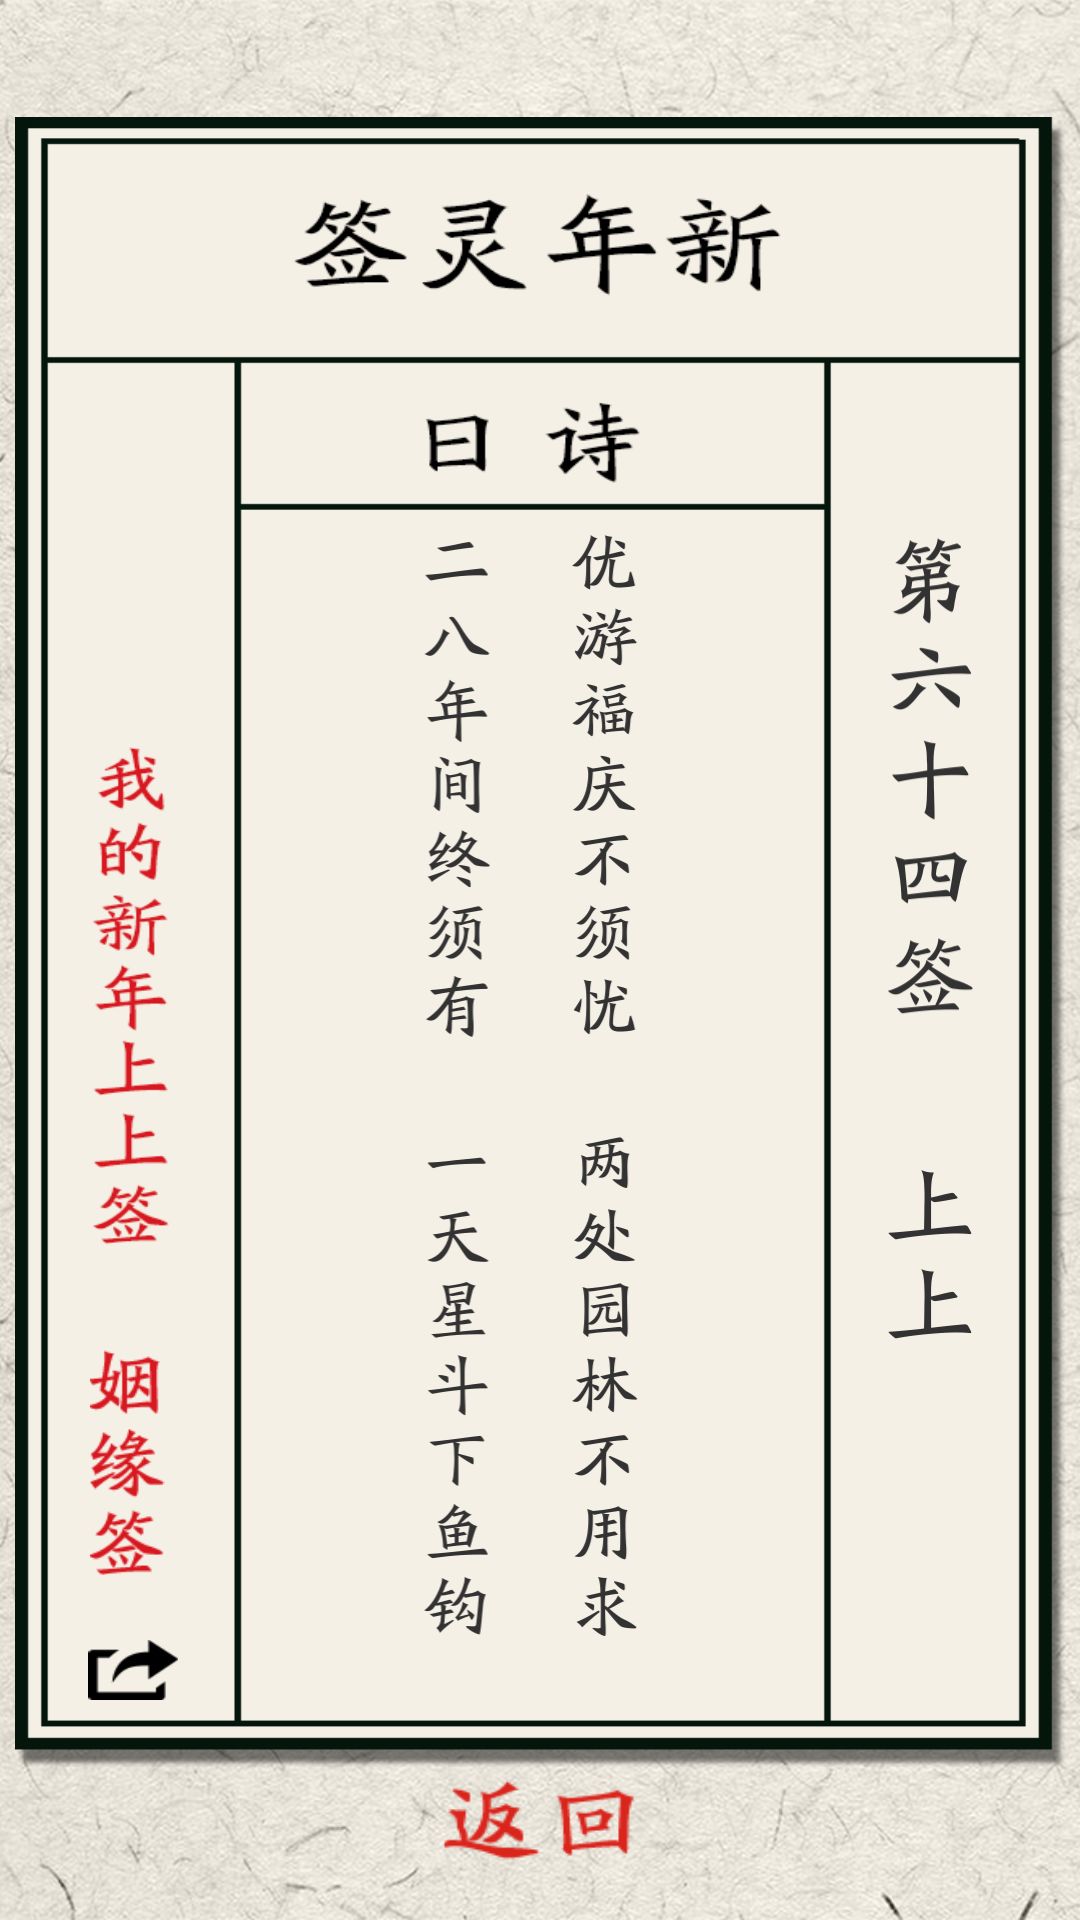 新年灵签
第六十四签 上上
诗曰
优游福庆不须忧 两处园林不用求
二八年间终须有 一天星斗下鱼钩
我的新年上上签 姻缘签
返回